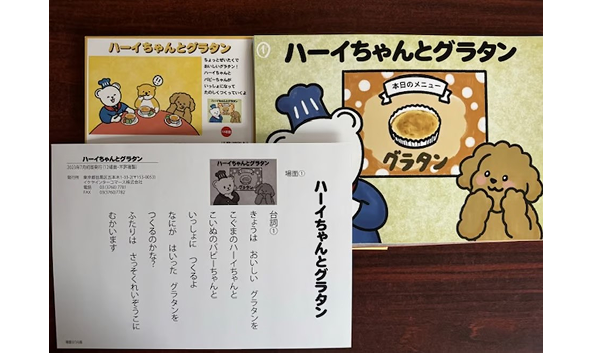 ハーイちゃんとグラタン
ちょっとぜいたくで
おいしいグラタン！
ハーイちゃんと
パピーちゃんが
いっしょになって
たのしくつくっていくよ
①
ハーイちゃんとグラタン
本日のメニュー
グラタン
ハーイちゃんとグラタン
発行所
ハーイちゃんとグラタン
場面①
ハーイちゃんとグラタン
台詞①
きょうは おいしい グラタンを
こぐまのハーイちゃんと
こいぬのパピーちゃんと
いっしょに つくるよ
なにが はいった グラタンを
つくるのかな?
ふたりは さっそくれいぞうこに
むかいます